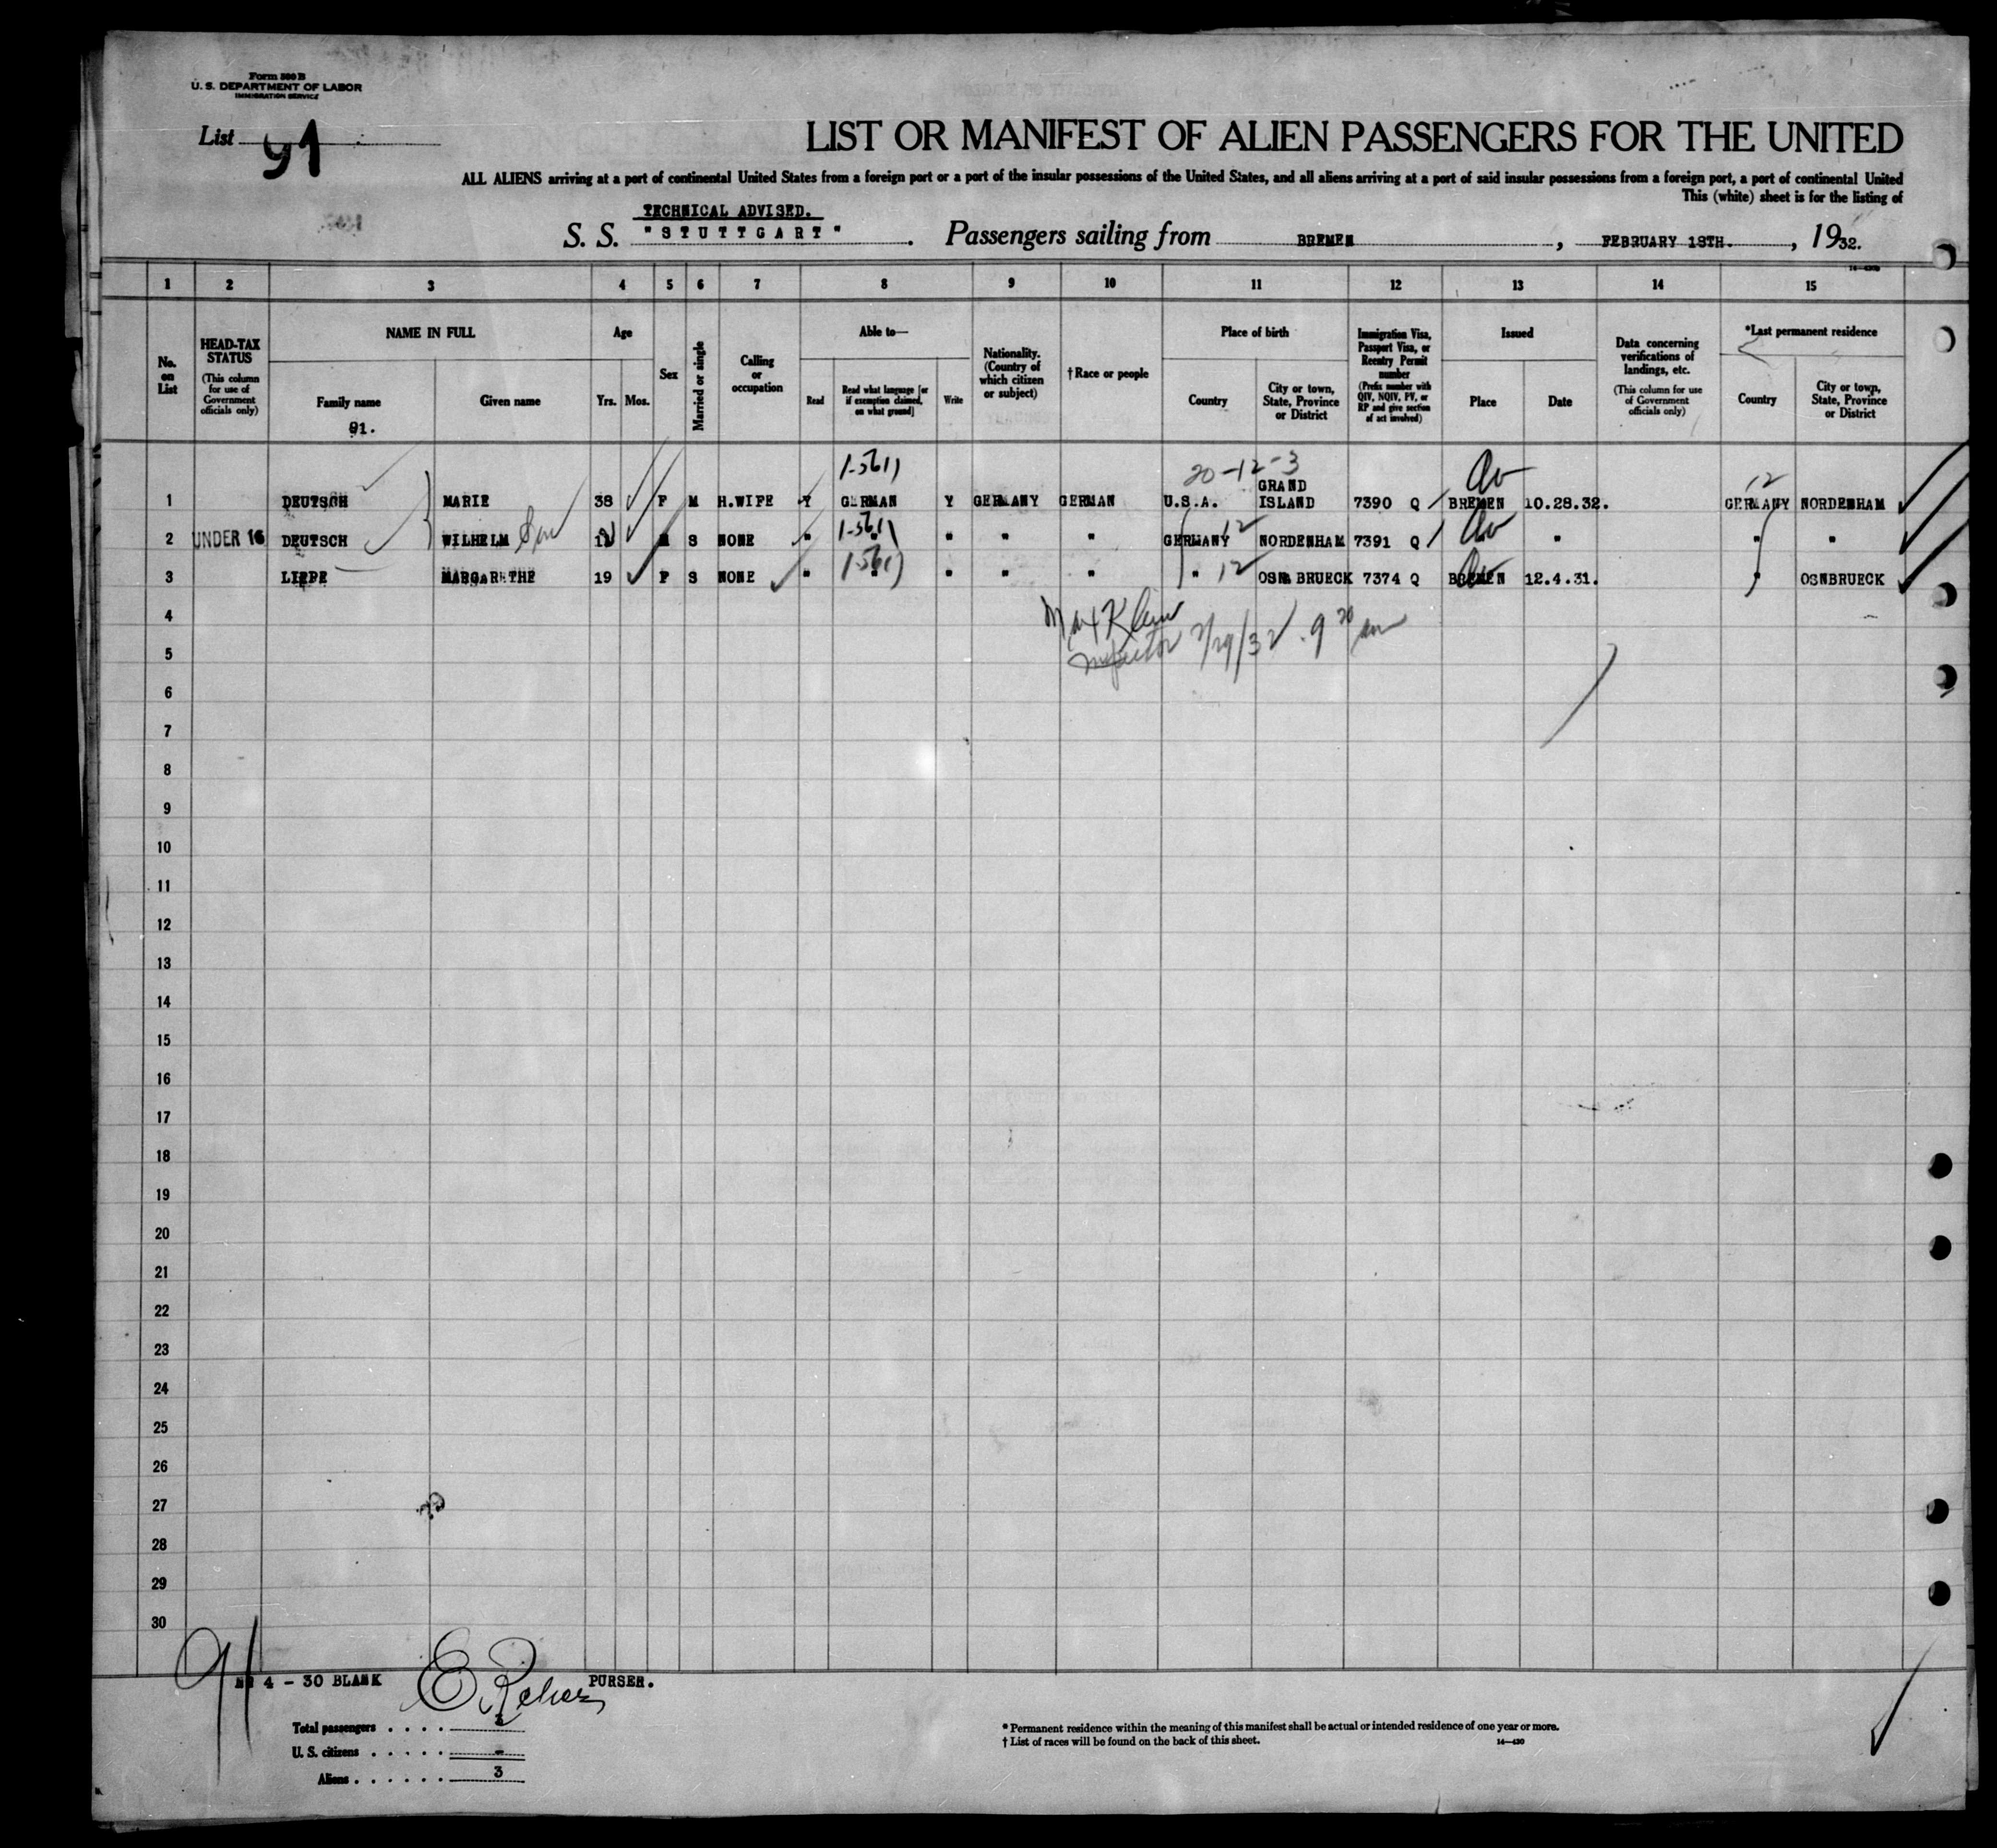 Form 500 B
U. S. DEPARTMENT OF LABOR
IMMIGRATION SERVICE
List 91
LIST OR MANIFEST OF ALIEN PASSENGERS FOR THE UNITED
ALL ALIENS arriving at a port of continental United States from a foreign port or a port of the insular possessions of the United States, and all aliens arriving at a port of said insular possessions from a foreign port, a port of continental United
This (white) sheet is for the listing of
TECHNICAL ADVISED.
S. S. "STUTTGART". Passengers sailing from BREMEN, FEBRUARY 18TH., 1932.
1 2 3 4 5 6 7 8 9 10 11 12 13 14 15
No. on List
HEAD-TAX STATUS (This column for use of Government officials only)
NAME IN FULL
Family name
91.
Given name
Age
Yrs. Mos.
Sex
Married or single
Calling or occupation
Able to—
Read
Read what language [or if exemption claimed, on what ground]
Write
Nationality. (Country of which citizen or subject)
† Race or people
Place of birth
Country
City or town, State, Province or District
Immigration Visa, Passport Visa, or Reentry Permit number (Prefix number with QIV, NQIV, PV, or RP and give section of act involved)
Issued
Place
Date
Data concerning verifications of landings, etc. (This column for use of Government officials only)
*Last permanent residence
Country
City or town, State, Province or District
20-12-3
1 DEUTSCH MARIE 38 F M H.WIFE Y GERMAN Y GERMANY GERMAN U.S.A. GRAND ISLAND 7390 Q BREMEN 10.28.32. 12 GERMANY NORDENHAM
2 UNDER 16 DEUTSCH WILHELM Son M S NONE " " " " " GERMANY 12 NORDENHAM 7391 Q " " "
3 LIPPE MARGARETHE 19 F S NONE " " " " " " 12 OSNABRUECK 7374 Q BREMEN 12.4.31. " OSNBRUECK
4
Max Klein
5
Inspector 2/29/32. 9 20 am
6
7
8
9
10
11
12
13
14
15
16
17
18
19
20
21
22
23
24
25
26
27
28
29
30
91
4 - 30 BLANK PURSER.
Total passengers . . . . 3
U. S. citizens . . . . . -
Aliens . . . . . . 3
* Permanent residence within the meaning of this manifest shall be actual or intended residence of one year or more.
† List of races will be found on the back of this sheet.
14—430